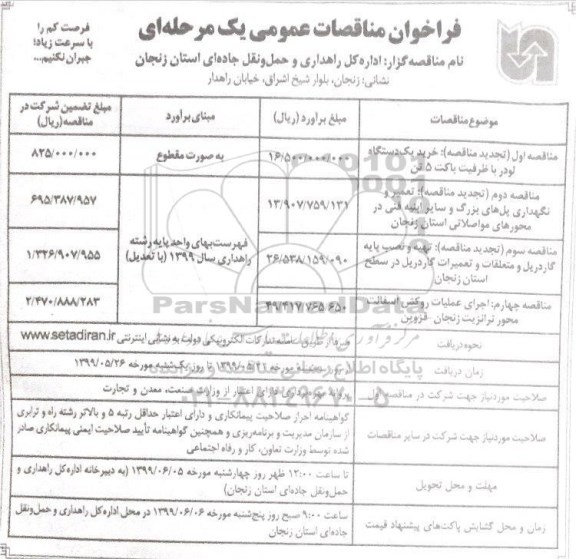 فراخوان مناقصات عمومی یک مرحله‌ای
فرصت کم را
با سرعت زیاد؛
جبران نکنیم...
نام مناقصه‌گزار: اداره کل راهداری و حمل‌ونقل جاده‌ای استان زنجان
نشانی: زنجان، بلوار شیخ اشراق، خیابان راهدار
موضوع مناقصات
مبلغ برآورد (ریال)
مبنای برآورد
مبلغ تضمین شرکت در
مناقصه(ریال)
مناقصه اول (تجدید مناقصه): خرید یک دستگاه
لودر با ظرفیت باکت ۵ تن
۱۶/۵۰۰/۰۰۰/۰۰۰
به صورت مقطوع
۸۲۵/۰۰۰/۰۰۰
مناقصه دوم (تجدید مناقصه): تعمیر و
نگهداری پل‌های بزرگ و سایر ابنیه فنی در
محورهای مواصلاتی استان زنجان
۱۳/۹۰۷/۷۵۹/۱۳۱
فهرست‌بهای واحد پایه رشته
راهداری سال ۱۳۹۹ (با تعدیل)
۶۹۵/۳۸۷/۹۵۷
مناقصه سوم (تجدید مناقصه): تهیه و نصب پایه
گاردریل و متعلقات و تعمیرات گاردریل در سطح
استان زنجان
۲۶/۵۳۸/۱۵۹/۰۹۰
۱/۳۲۶/۹۰۷/۹۵۵
مناقصه چهارم: اجرای عملیات روکش آسفالت
محور ترانزیت زنجان -قزوین
۴۹/۴۱۷/۷۶۵/۶۵۰
۲/۴۷۰/۸۸۸/۲۸۳
نحوه دریافت
سامانه تدارکات الکترونیکی دولت به نشانی اینترنتی www.setadiran.ir
زمان دریافت
مورخه ۱۳۹۹/۰۵/۲۱ تا روز یک‌شنبه مورخه ۱۳۹۹/۰۵/۲۶
صلاحیت موردنیاز جهت شرکت در مناقصه اول
دارای اعتبار از وزارت صنعت، معدن و تجارت
صلاحیت موردنیاز جهت شرکت در سایر مناقصات
گواهینامه احراز صلاحیت پیمانکاری و دارای اعتبار حداقل رتبه ۵ و بالاتر رشته راه و ترابری
از سازمان مدیریت و برنامه‌ریزی و همچنین گواهینامه تأیید صلاحیت ایمنی پیمانکاری صادر
شده توسط وزارت تعاون، کار و رفاه اجتماعی
مهلت و محل تحویل
تا ساعت ۱۲:۰۰ ظهر روز چهارشنبه مورخه ۱۳۹۹/۰۶/۰۵ (به دبیرخانه اداره کل راهداری و
حمل‌ونقل جاده‌ای استان زنجان)
زمان و محل گشایش پاکت‌های پیشنهاد قیمت
ساعت ۹:۰۰ صبح روز پنج‌شنبه مورخه ۱۳۹۹/۰۶/۰۶ در محل اداره کل راهداری و حمل‌ونقل
جاده‌ای استان زنجان